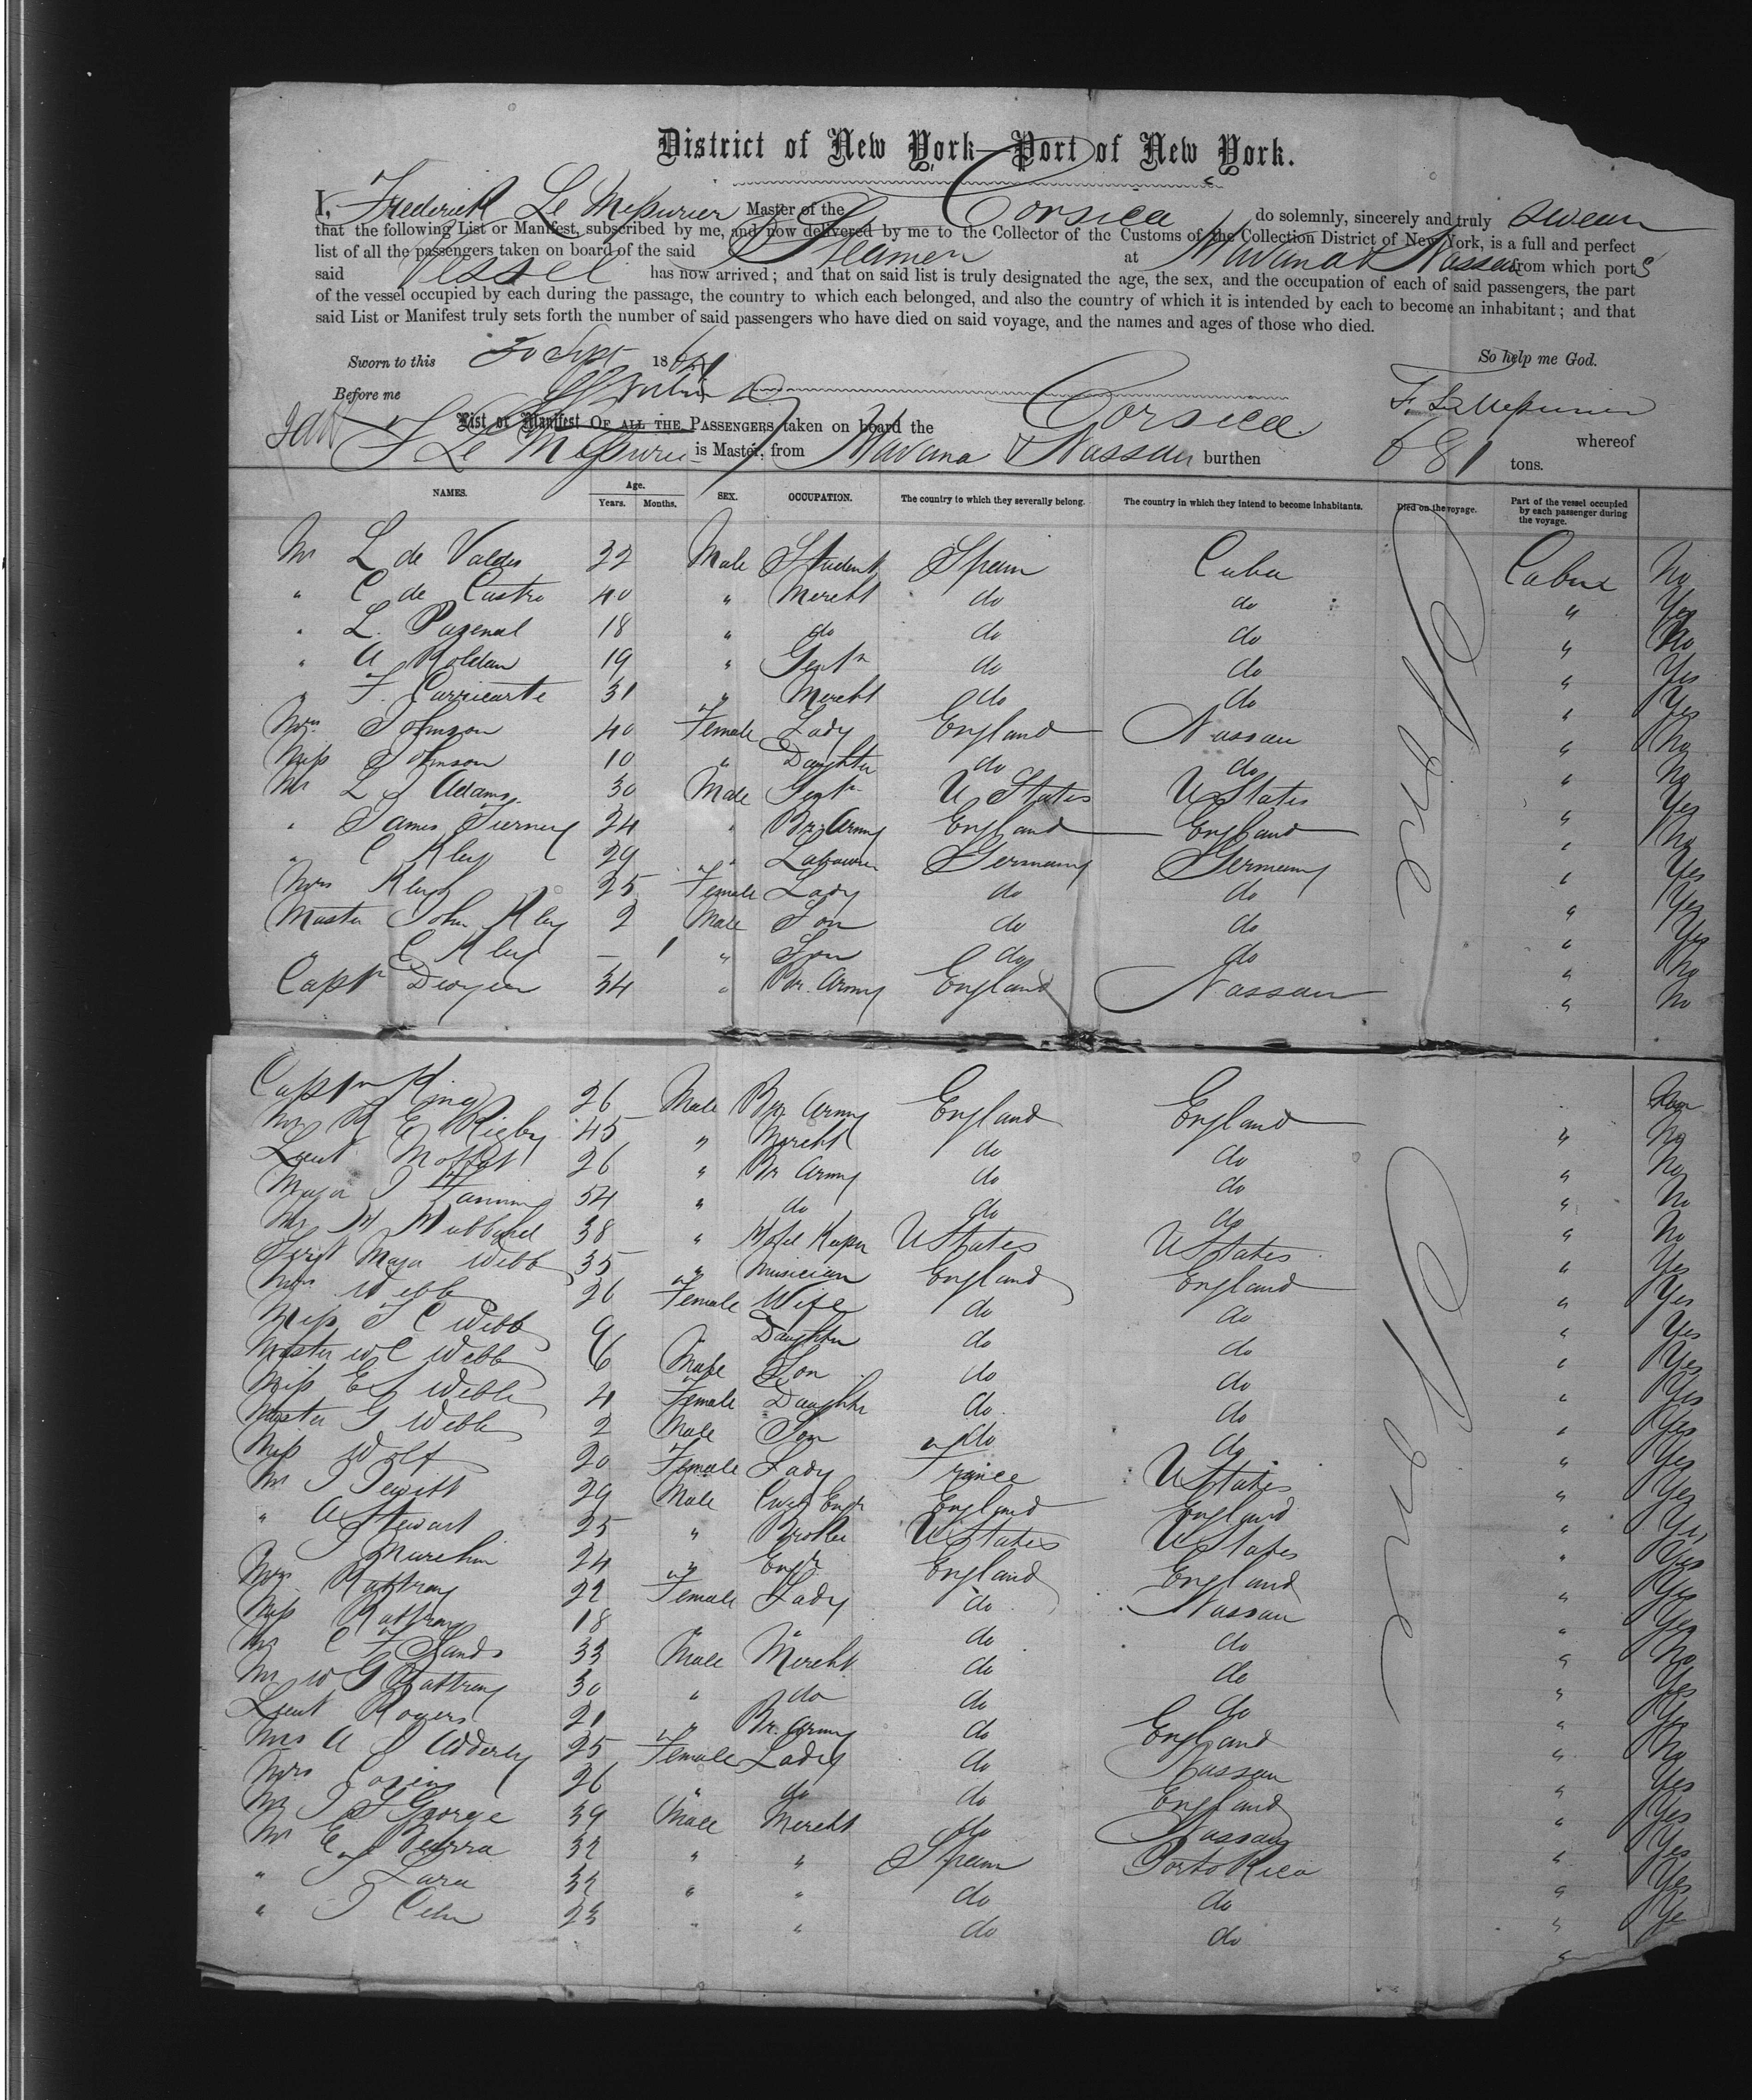 District of New York—Port of New York.
I, Frederick Le Mesurier Master of the Corsica do solemnly, sincerely and truly swear
that the following List or Manifest, subscribed by me, and now delivered by me to the Collector of the Customs of the Collection District of New York, is a full and perfect
list of all the passengers taken on board of the said Steamer at Havana & Nassau from which ports
said Vessel has now arrived; and that on said list is truly designated the age, the sex, and the occupation of each of said passengers, the part
of the vessel occupied by each during the passage, the country to which each belonged, and also the country of which it is intended by each to become an inhabitant; and that
said List or Manifest truly sets forth the number of said passengers who have died on said voyage, and the names and ages of those who died.
Sworn to this 30 Sept 186 So help me God.
Before me F. Le Mesurier
List or Manifest OF ALL THE PASSENGERS taken on board the Corsica whereof
F Le Mesurier is Master, from Havana & Nassau burthen 681 tons.
NAMES. Age. Years. Months. SEX. OCCUPATION. The country to which they severally belong. The country in which they intend to become inhabitants. Died on the voyage. Part of the vessel occupied by each passenger during the voyage.
Mr L de Valdes 22 Male Student Spain Cuba Cabin No
" C de Castro 40 " Mercht do do " Yes
" L. 18 " do do do " No
" A Roldan 19 " Gentn do do " Yes
" F. Curricarte 31 " Mercht do do " Yes
Mrs Johnson 40 Female Lady England Nassau " No
Miss Johnson 10 " Daughter do do " No
Mr L J Adams 30 Male Gentn U States U States " Yes
" James Tierney 24 " Br. Army England England " No
" C Kley 29 " Labourer Germany Germany " Yes
Mrs Kley 25 Female Lady do do " Yes
Master John Kley 2 Male Son do do " Yes
" C Kley — 1 " Son do do " No
Captn 34 " Br. Army England Nassau " No
None
Captn King 26 Male Br. Army England England
Mr R E Rigby 45 " Mercht do do " No
Lieut Moffat 26 " Br Army do do " No
Major J Fanning 54 " do do do " No
Mr H Hubbard 38 " Hotel Keeper U States U States " No
Sergt Major Webb 35 " Musician England England " Yes
Mrs Webb 26 Female Wife do do " Yes
Miss J C Webb 9 " Daughter do do " Yes
Master W C Webb 6 Male Son do do " Yes
Miss E J Webb 4 Female Daughter do do " Yes
Master G Webb 2 Male Son do do " Yes
Miss Wolf 20 Female Lady France U States " Yes
Mr J Jewitt 29 Male Civil Engr England England " Yes
" A Stewart 25 " Broker U States U States " Yes
24 " Engr England England " Yes
Mrs Rattray 22 Female Lady do Nassau " Yes
Miss Rattray 18 " " do do " Yes
Mr C F Sands 33 Male Mercht do do " No
Mr W G Rattray 30 " do do do " Yes
Lieut Rogers 21 " Br. Army do England " Yes
Mrs A J Adderley 25 Female Lady do Nassau " No
Mrs 26 " do do England " Yes
Mr J S George 39 Male Mercht do Nassau " Yes
Mr E 32 " " Spain Porto Rico " Yes
" J Lara 32 " " do do " Yes
" J 23 " " do do " Ye
None